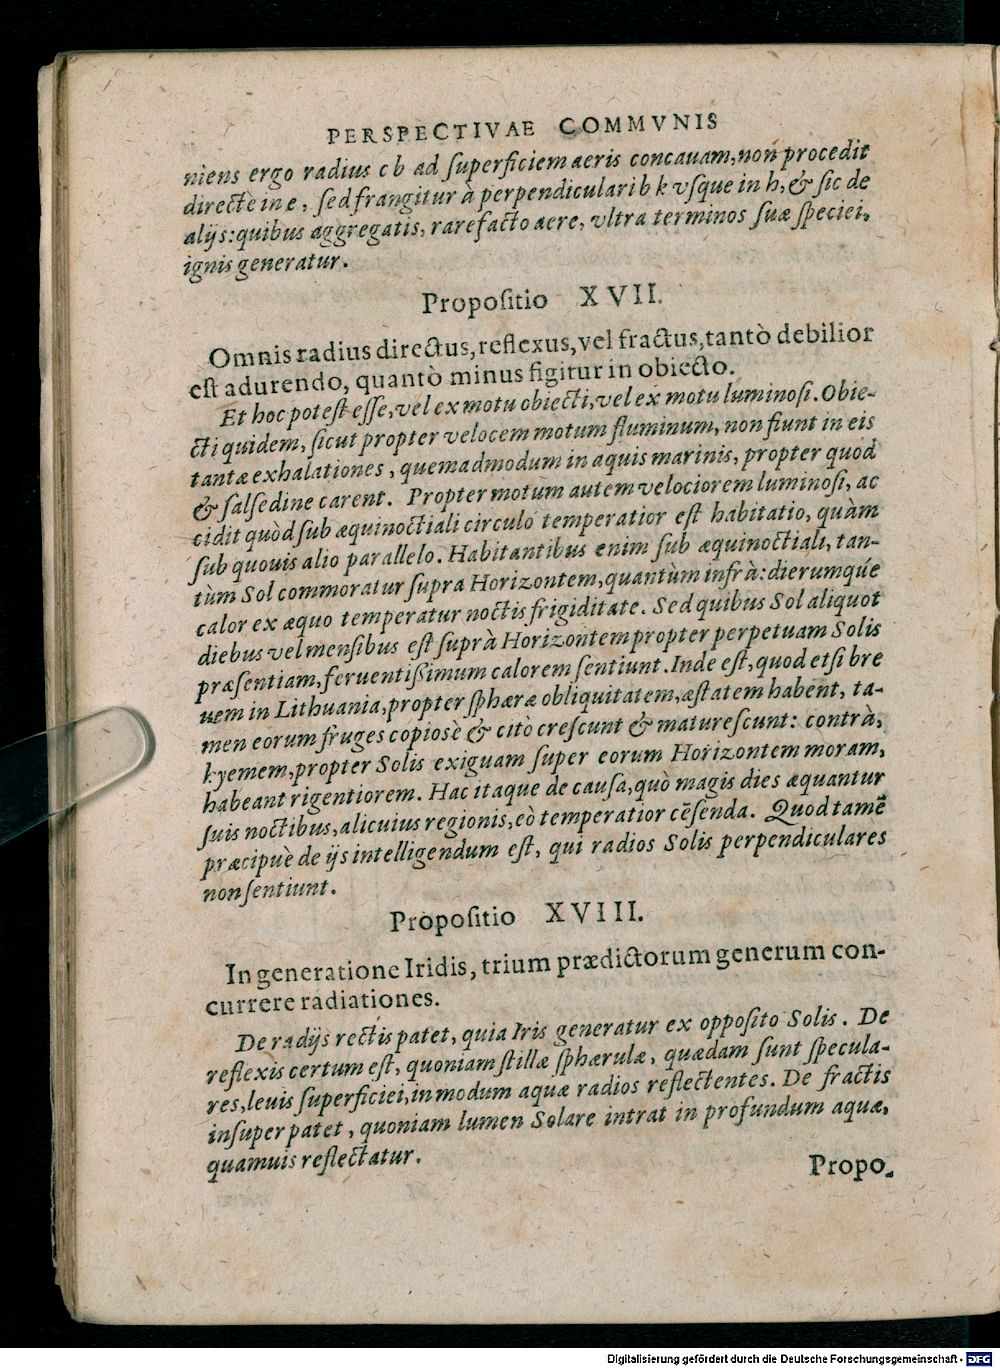 PERSPECTIVAE COMMVNIS
niens ergo radius c b ad ſuperficiem aeris concauam, non procedit
directè in e, ſed frangitur à perpendiculari b k vſque in h, & ſic de
alijs: quibus aggregatis, rarefacto aere, vltra terminos ſuæ ſpeciei,
ignis generatur.
Propoſitio XVII.
Omnis radius directus, reflexus, vel fractus, tantò debilior
eſt adurendo, quantò minus figitur in obiecto.
Et hoc poteſt eſſe, vel ex motu obiecti, vel ex motu luminoſi. Obie-
cti quidem, ſicut propter velocem motum fluminum, non fiunt in eis
tantæ exhalationes, quemadmodum in aquis marinis, propter quod
& ſalſedine carent. Propter motum autem velociorem luminoſi, ac
cidit quòd ſub æquinoctiali circulo temperatior eſt habitatio, quàm
ſub quouis alio parallelo. Habitantibus enim ſub æquinoctiali, tan-
tùm Sol commoratur ſupra Horizontem, quantùm infrà: dierumq́ue
calor ex æquo temperatur noctis frigiditate. Sed quibus Sol aliquot
diebus vel menſibus eſt ſuprà Horizontem propter perpetuam Solis
præſentiam, feruentiſſimum calorem ſentiunt. Inde eſt, quod etſi bre
uem in Lithuania, propter ſphæræ obliquitatem, æſtatem habent, ta-
men eorum fruges copiosè & citò creſcunt & matureſcunt: contrà,
hyemem, propter Solis exiguam ſuper eorum Horizontem moram,
habeant rigentiorem. Hac itaque de cauſa, quò magis dies æquantur
ſuis noctibus, alicuius regionis, eò temperatior cēſenda. Quod tamē
præcipuè de ijs intelligendum eſt, qui radios Solis perpendiculares
non ſentiunt.
Propoſitio XVIII.
In generatione Iridis, trium prædictorum generum con-
currere radiationes.
De radijs rectis patet, quia Iris generatur ex oppoſito Solis. De
reflexis certum eſt, quoniam ſtillæ ſphærulæ, quædam ſunt ſpecula-
res, leuis ſuperficiei, in modum aquæ radios reflectentes. De fractis
inſuper patet, quoniam lumen Solare intrat in profundum aquæ,
quamuis reflectatur.
Propo-
Digitalisierung gefördert durch die Deutsche Forschungsgemeinschaft - DFG